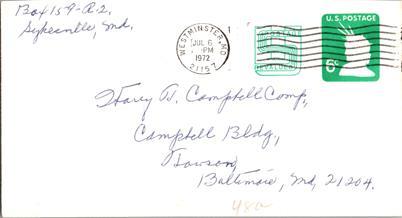 Box 159-R2,
Sykesville, Md.
WESTMINSTER, MD
JUL 6
PM
1972
21157
U.S. POSTAGE
6c
Harry T. Campbell Comp,
Campbell Bldg,
Towson,
Baltimore, Md, 21204.
482